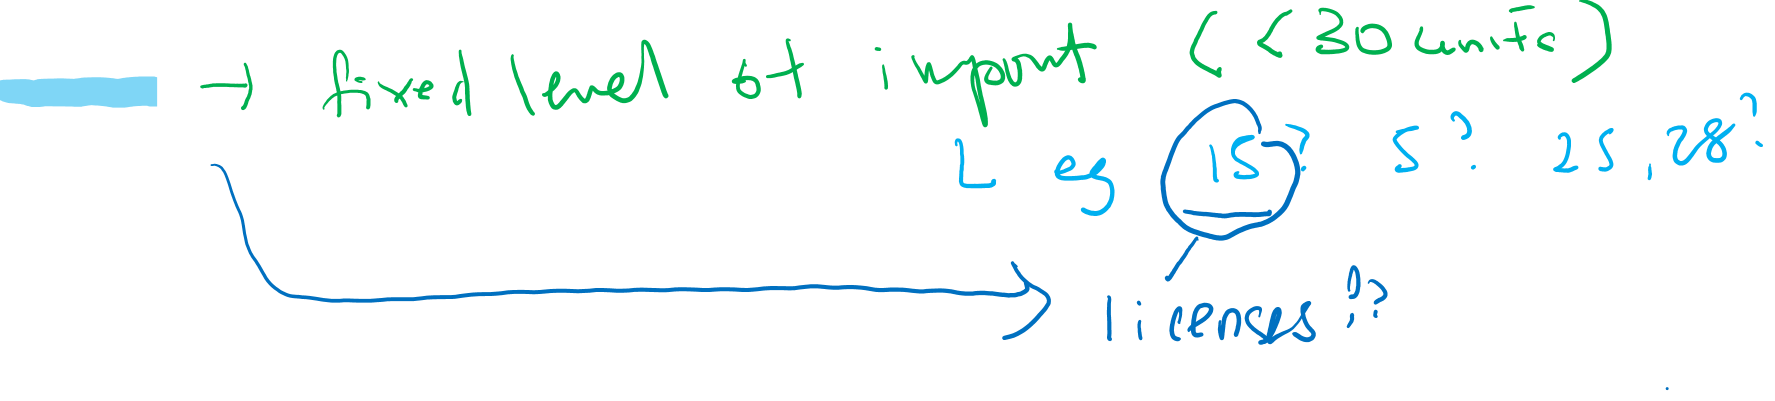 → fixed level of import (< 30 units)
L eg 15? 5? 25, 28?
licenses??